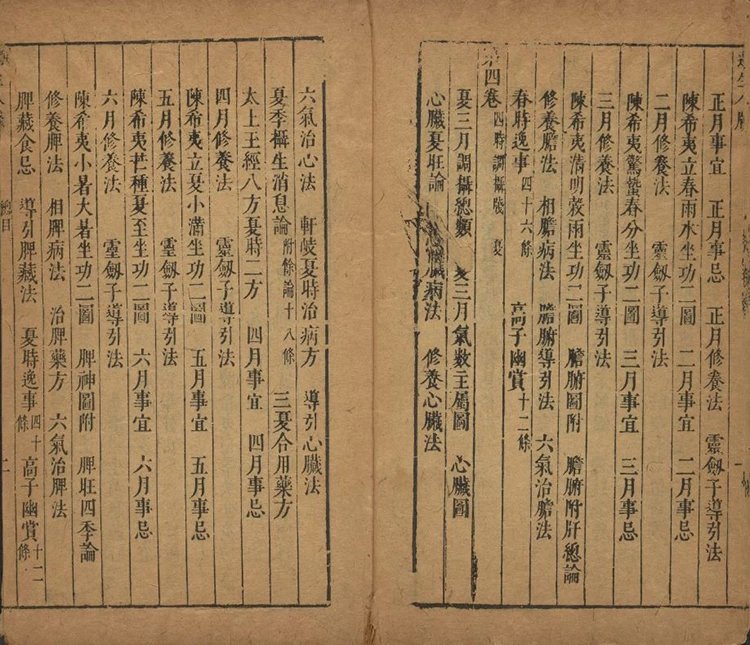 正月事宜　正月事忌　正月修養法　靈劔子導引法
陳希夷立春雨水坐功二圖　二月事宜　二月事忌
二月修養法　靈劔子導引法
陳希夷驚蟄春分坐功二圖　三月事宜　三月事忌
三月修養法　靈劔子導引法
陳希夷清明穀雨坐功二圖　膽腑圖附　膽腑附肝總論
修養膽法　相膽病法　膽腑導引法　六氣治膽法
春時逸事四十六條　高子幽賞十二條
四卷四時調攝牋　夏
夏三月調攝總類　夏三月氣數主屬圖　心臟圖
心臟夏旺論　心臟病法　修養心臟法
六氣治心法　軒岐夏時治病方　導引心臟法
夏季攝生消息論附餘論十八條　三夏合用藥方
太上玉經八方夏時二方　四月事宜　四月事忌
四月修養法　靈劔子導引法
陳希夷立夏小滿坐功二圖　五月事宜　五月事忌
五月修養法　靈劔子導引法
陳希夷芒種夏至坐功二圖　六月事宜　六月事忌
六月修養法　靈劔子導引法
陳希夷小暑大暑坐功二圖　脾神圖附　脾旺四季論
修養脾法　相脾病法　治脾藥方　六氣治脾法
脾藏食忌　導引脾藏法　夏時逸事四十條　高子幽賞十二條
總目
二